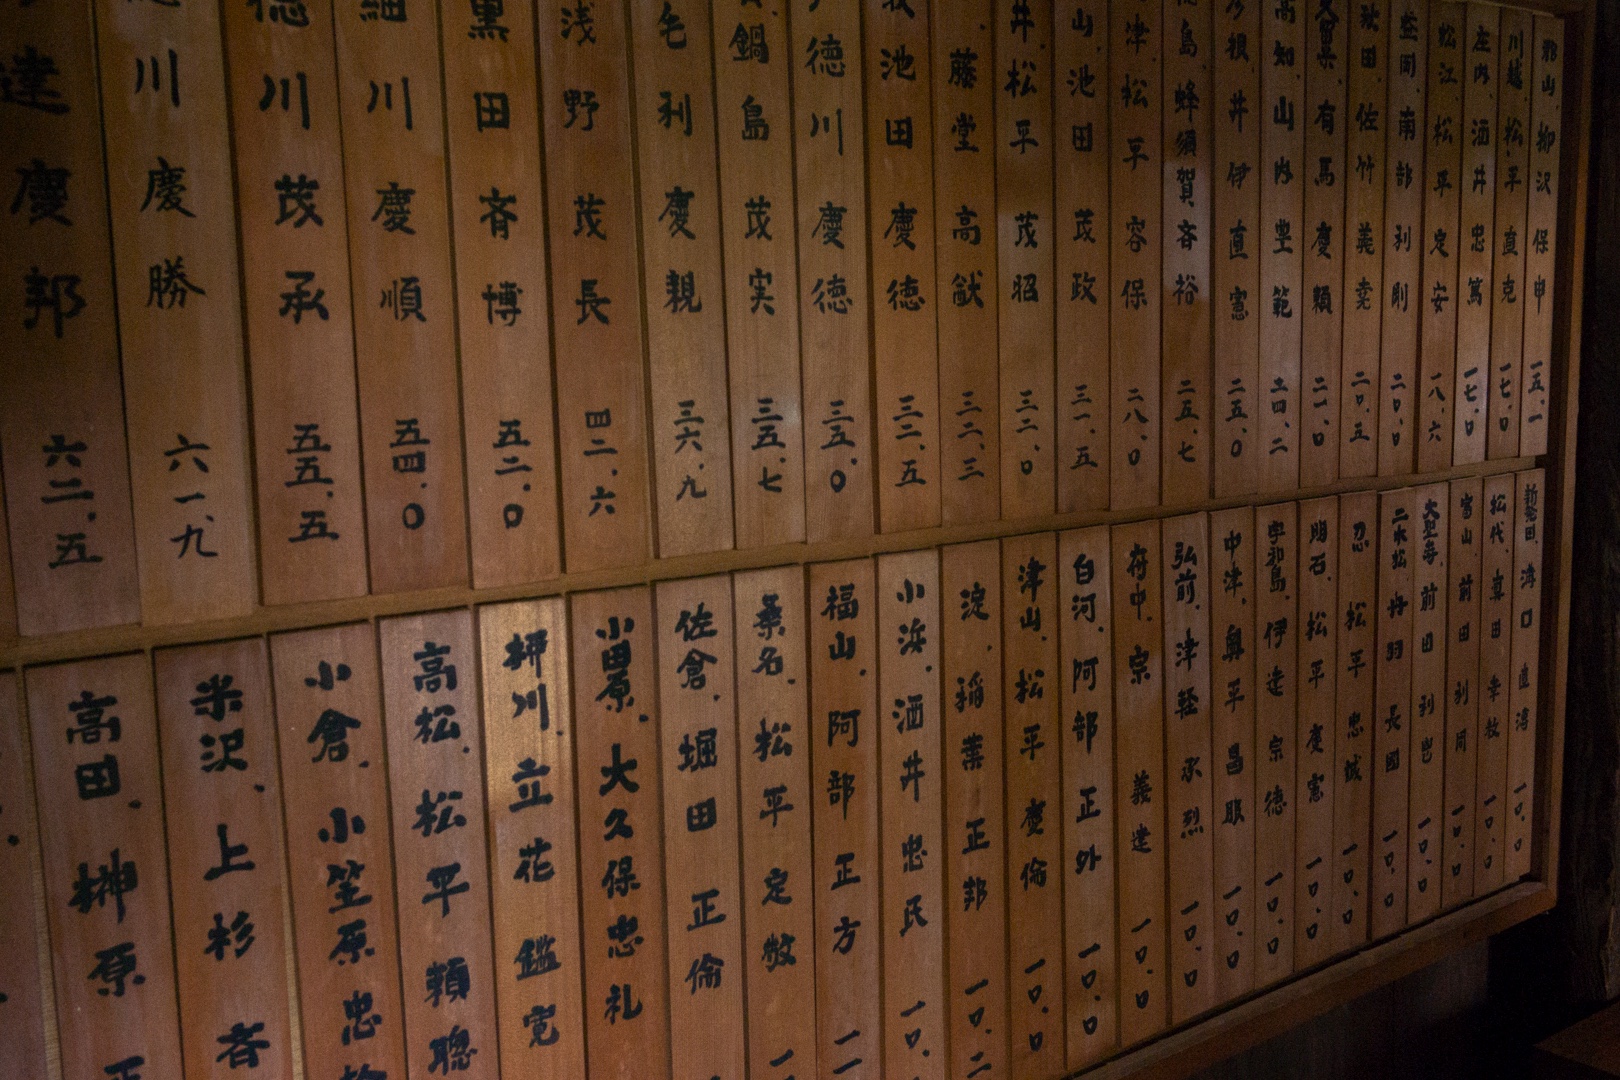 達慶邦 六二.五
川慶勝 六一.九
徳川茂承 五五.五
細川慶順 五四.〇
黒田斉博 五二.〇
浅野茂長 四二.六
毛利慶親 三六.九
鍋島茂実 三五.七
徳川慶徳 三五.〇
池田慶徳 三二.五
藤堂高猷 三二.三
井.松平茂昭 三二.〇
山.池田茂政 三一.五
津.松平容保 二八.〇
島.蜂須賀斉裕 二五.七
彦根.井伊直憲 二五.〇
高知.山内豊範 二四.二
久留米.有馬慶頼 二一.〇
秋田.佐竹義堯 二〇.五
盛岡.南部利剛 二〇.〇
松江.松平定安 一八.六
庄内.酒井忠篤 一七.〇
川越.松平直克 一七.〇
郡山.柳沢保申 一五.一
高田.榊原
米沢.上杉斉
小倉.小笠原忠
高松.松平頼聰
柳川.立花鑑寛
小田原.大久保忠礼
佐倉.堀田正倫
桑名.松平定敬
福山.阿部正方
小浜.酒井忠氏 一〇.
淀.稲葉正邦 一〇.二
津山.松平慶倫 一〇.〇
白河.阿部正外 一〇.〇
府中.宗義達 一〇.〇
弘前.津軽承烈 一〇.〇
中津.奥平昌服 一〇.〇
宇和島.伊達宗徳 一〇.〇
明石.松平慶憲 一〇.〇
忍.松平忠誠 一〇.〇
二本松.丹羽長國 一〇.〇
大聖寺.前田利鬯 一〇.〇
富山.前田利同 一〇.〇
松代.真田幸教 一〇.〇
新発田.溝口直溥 一〇.〇